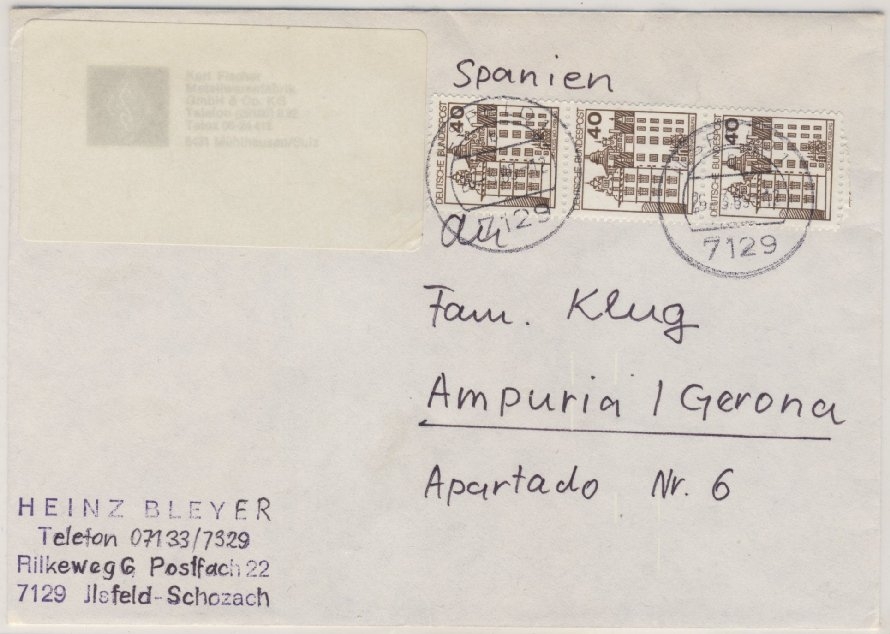 Karl Fischer
Metallwarenfabrik
GmbH & Co. KG
Telefon
Telex
Mühlhausen/Sulz
Spanien
DEUTSCHE BUNDESPOST 40
DEUTSCHE BUNDESPOST 40
DEUTSCHE BUNDESPOST 40
7129
7129
An
Fam. Klug
Ampuria / Gerona
Apartado Nr. 6
HEINZ BLEYER
Telefon 07133/7329
Rilkeweg 6 Postfach 22
7129 Ilsfeld-Schozach